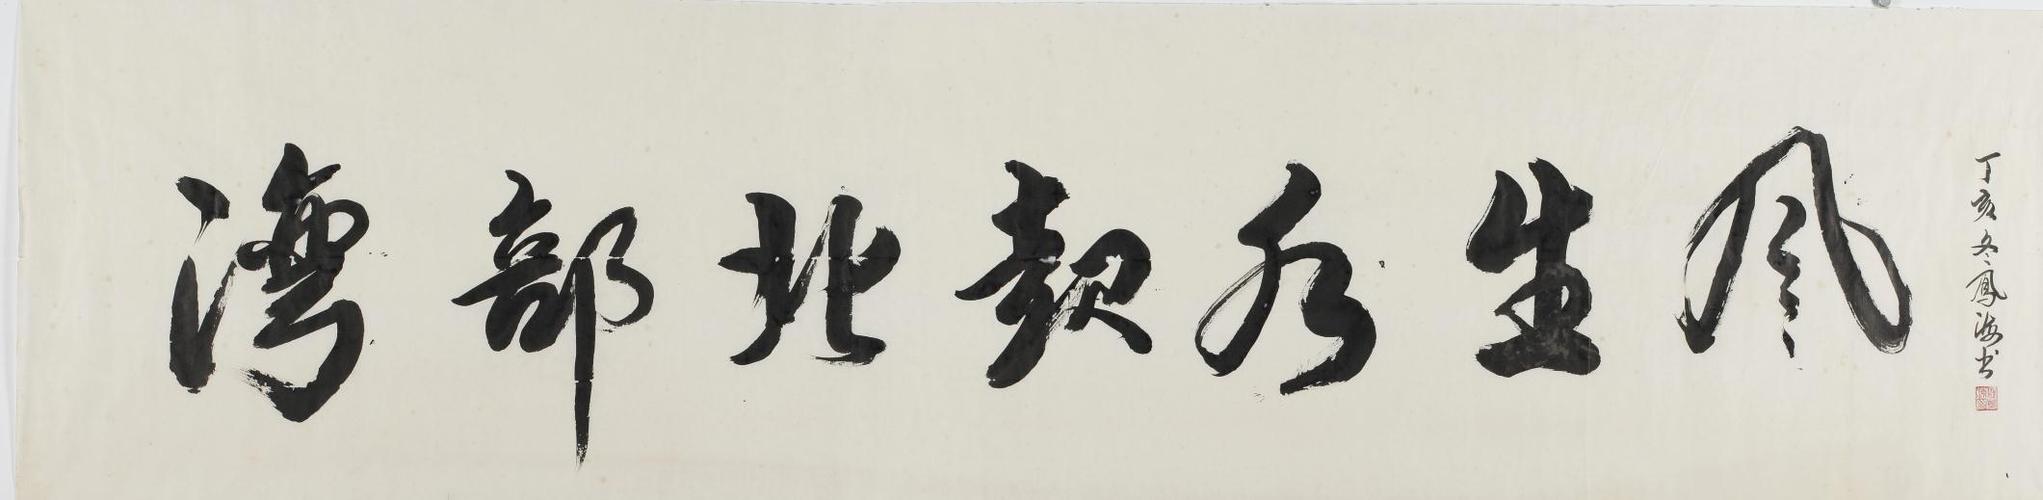 风生水起北部灣
丁亥冬鳳海书